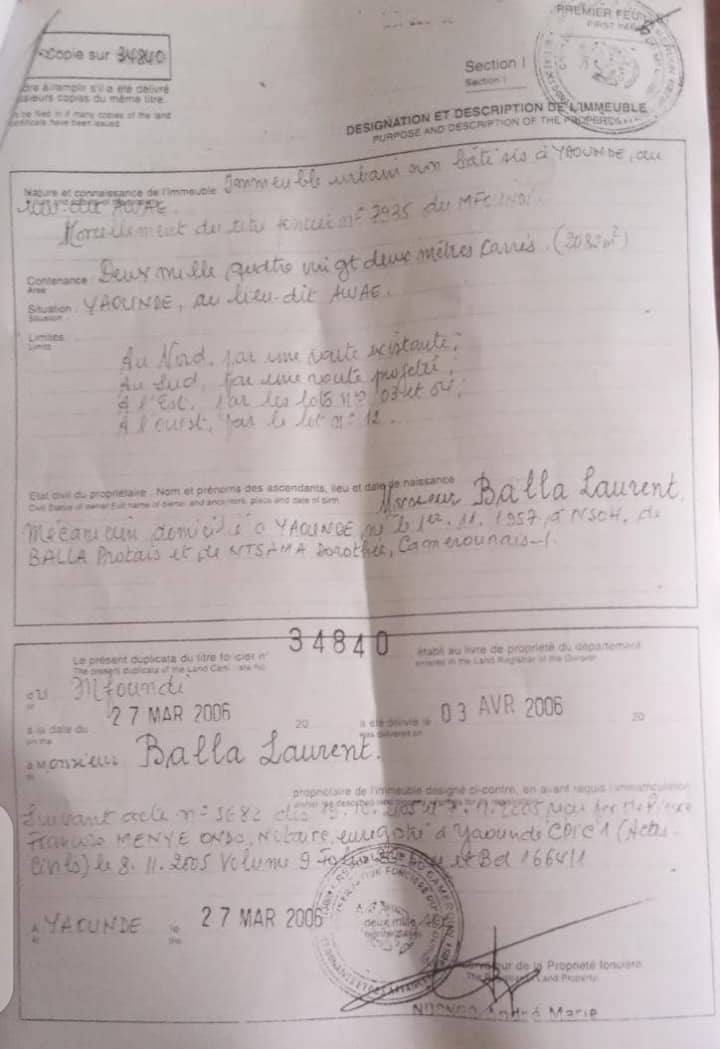 PREMIER FEU
FIRST
Copie sur 34840
Section I
Section I
s'il a été délivré
sieurs copies du même titre.
be filed in if many copies of the land
certificate have been issued
DESIGNATION ET DESCRIPTION DE L'IMMEUBLE
PURPOSE AND DESCRIPTION OF THE
Nature et connaissance de l'immeuble : Immeuble urbain non bâti sis à YAOUNDE, au
lieu-dit AWAE.
Morcellement du titre foncier n° 2935 du MFOUNDI.
Contenance : Deux mille quatre vingt deux mètres carrés. (2082 m²)
Area
Situation : YAOUNDE, au lieu-dit AWAE.
Situation
Limites
Limits
Au Nord, par une route existante;
Au Sud, par une route projeté;
A l'Est, par les lots n° 03 et 04;
A l'ouest, par le lot n° 12.
Etat civil du propriétaire : Nom et prénoms des ascendants, lieu et date de naissance
Civil Status of owner: Full name of owner and ancestors, place and date of birth
Monsieur Balla Laurent,
Mécanicien domicilié à YAOUNDE, né le 1er. 11. 1957 à NSOH, de
BALLA Protais et de NTSAMA Dorothée, Camerounais
34840
Le présent duplicata du titre foncier n°
établi au livre de propriété du département
The present duplicata of the Land Certificate No.
entered in the Land Register of the Division
du Mfoundi
of
à la date du 27 MAR 2006 20 a été délivré le 03 AVR 2006 20
on the was delivered on
à Monsieur Balla Laurent.
to
propriétaire de l'immeuble désigné ci-contre, en ayant requis l'immatriculation
Suivant acte n° 5682 des
Francis MENYE ONDO, Notaire, enregistré à Yaoundé CDIC 1 (Actes
Civils) le 8. 11. 2005 Volume 9 et Bd 1664/1
A YAOUNDE le 27 MAR 2006
At the
deux mille
de la Propriété foncière
Land Property
André Marie